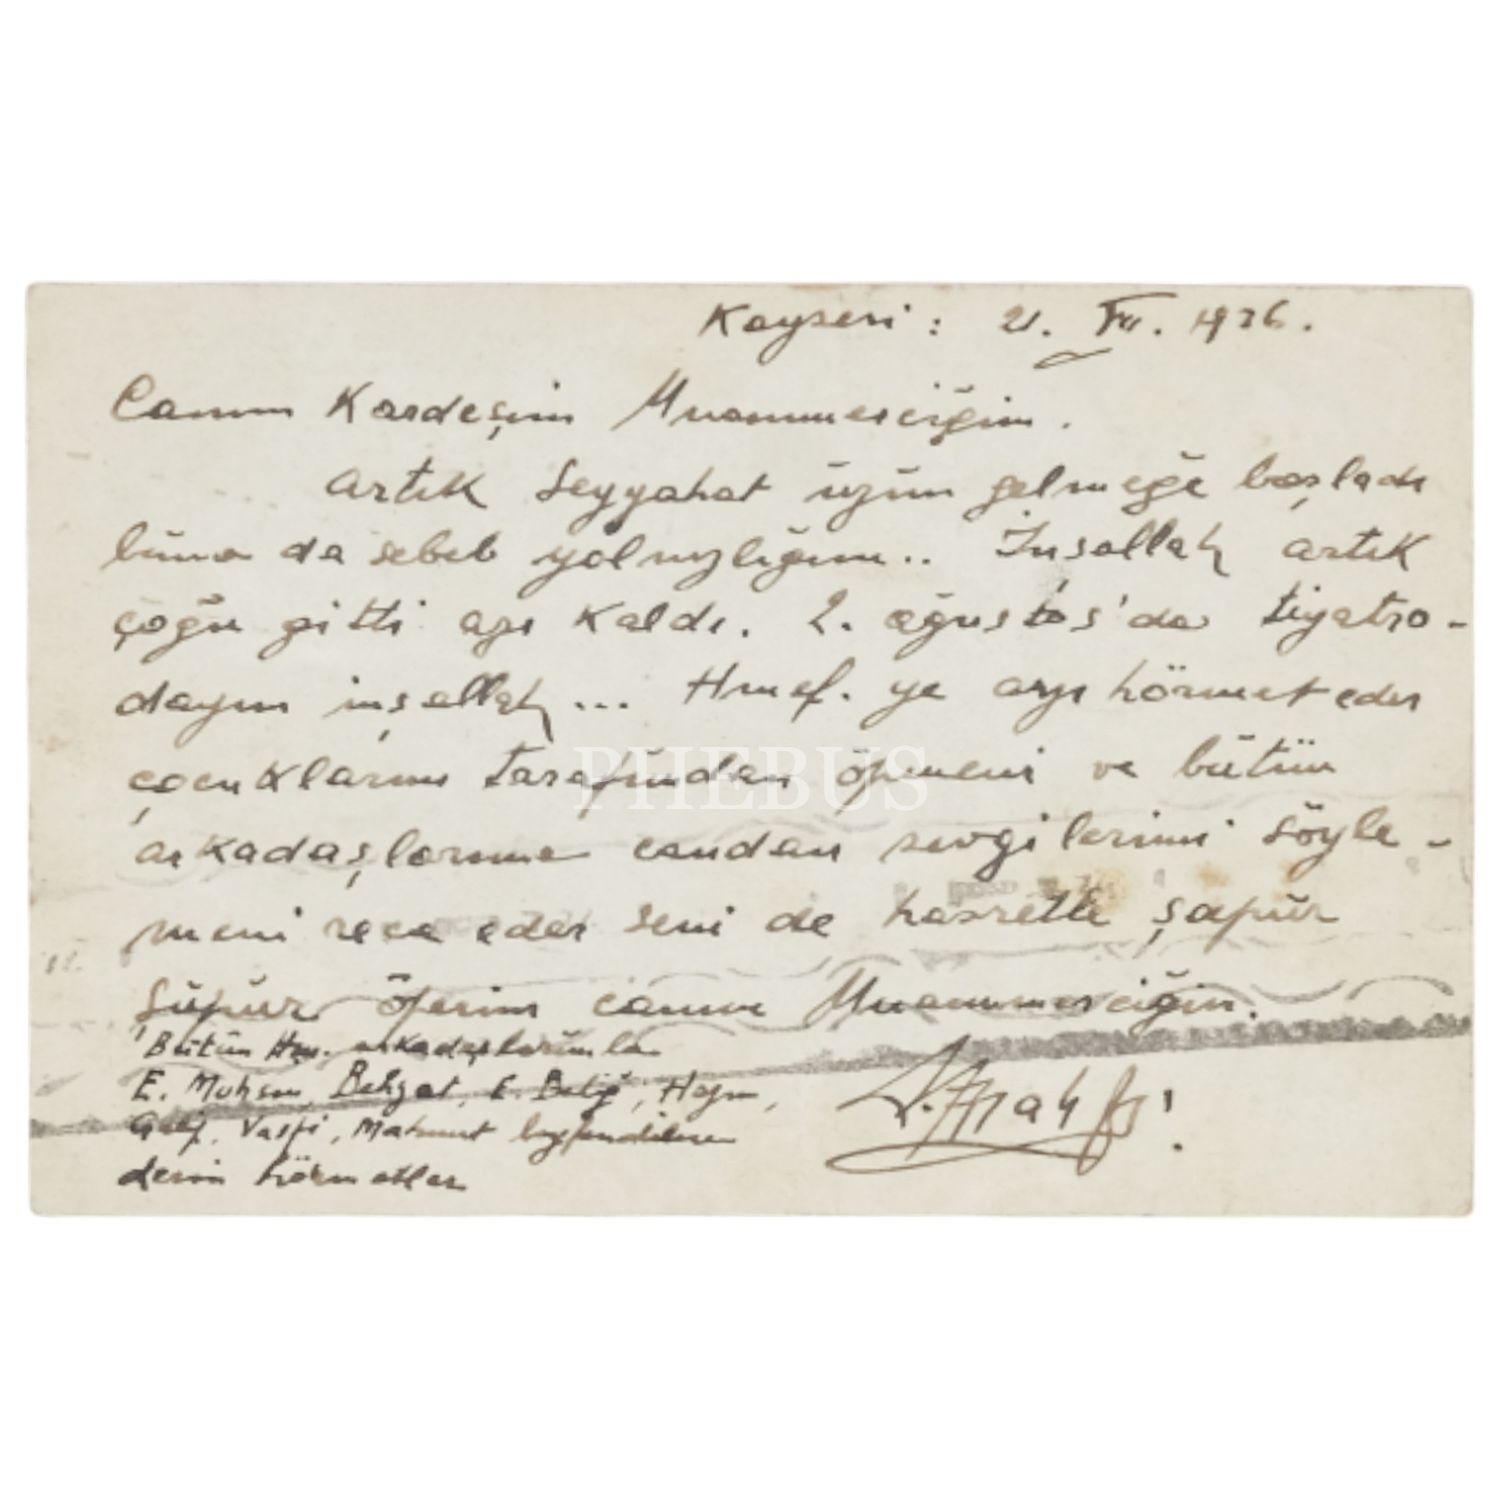 Kayseri: 21. VII. 1936.
Canım Kardeşim Muammerciğim.
artık Seyyahat üzün gelmeğe başladı
büna da sebeb yalnızlığım.. İnşallah artık
çoğu gitti azı kaldı. 2. ağustos'da tiyatro-
dayım inşallah... Hmef. ye arzı hörmet eder
çocuklarımı tarafımdan öpmeni ve bütün
arkadaşlarıma candan sevgilerimi söyle-
meni reca eder seni de hasretle şapür
şüpür öperim canım Muammerciğim.
PHEBUS
Bütün Hm. arkadaşlarımla
E. Muhsin, Behzat, E. Beliğ, Hazım,
Galip, Vasfi, Mahmut beyfendilere
derin hörmetler